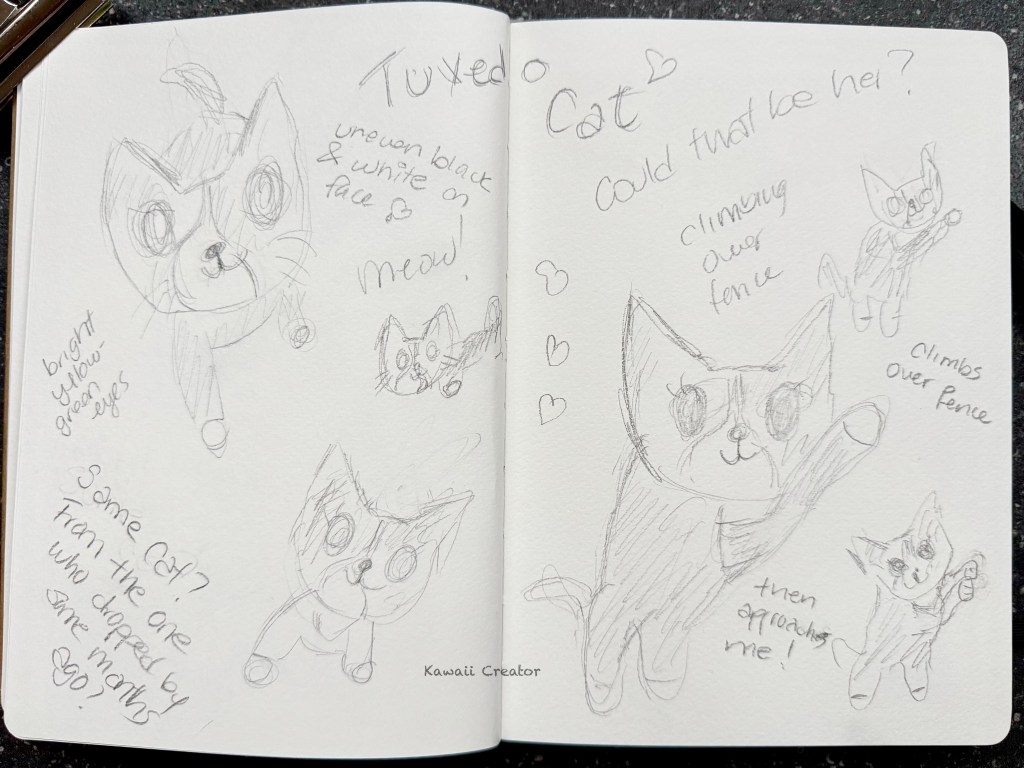 Tuxedo
Cat
uneven black
& white on
face
meow!
bright
yellow-
green
eyes
Same cat?
From the one
who chopped by
some months
ago?
Could that be her?
climbing
over
fence
Climbs
over fence
then
approaches
me!
Kawaii Creator